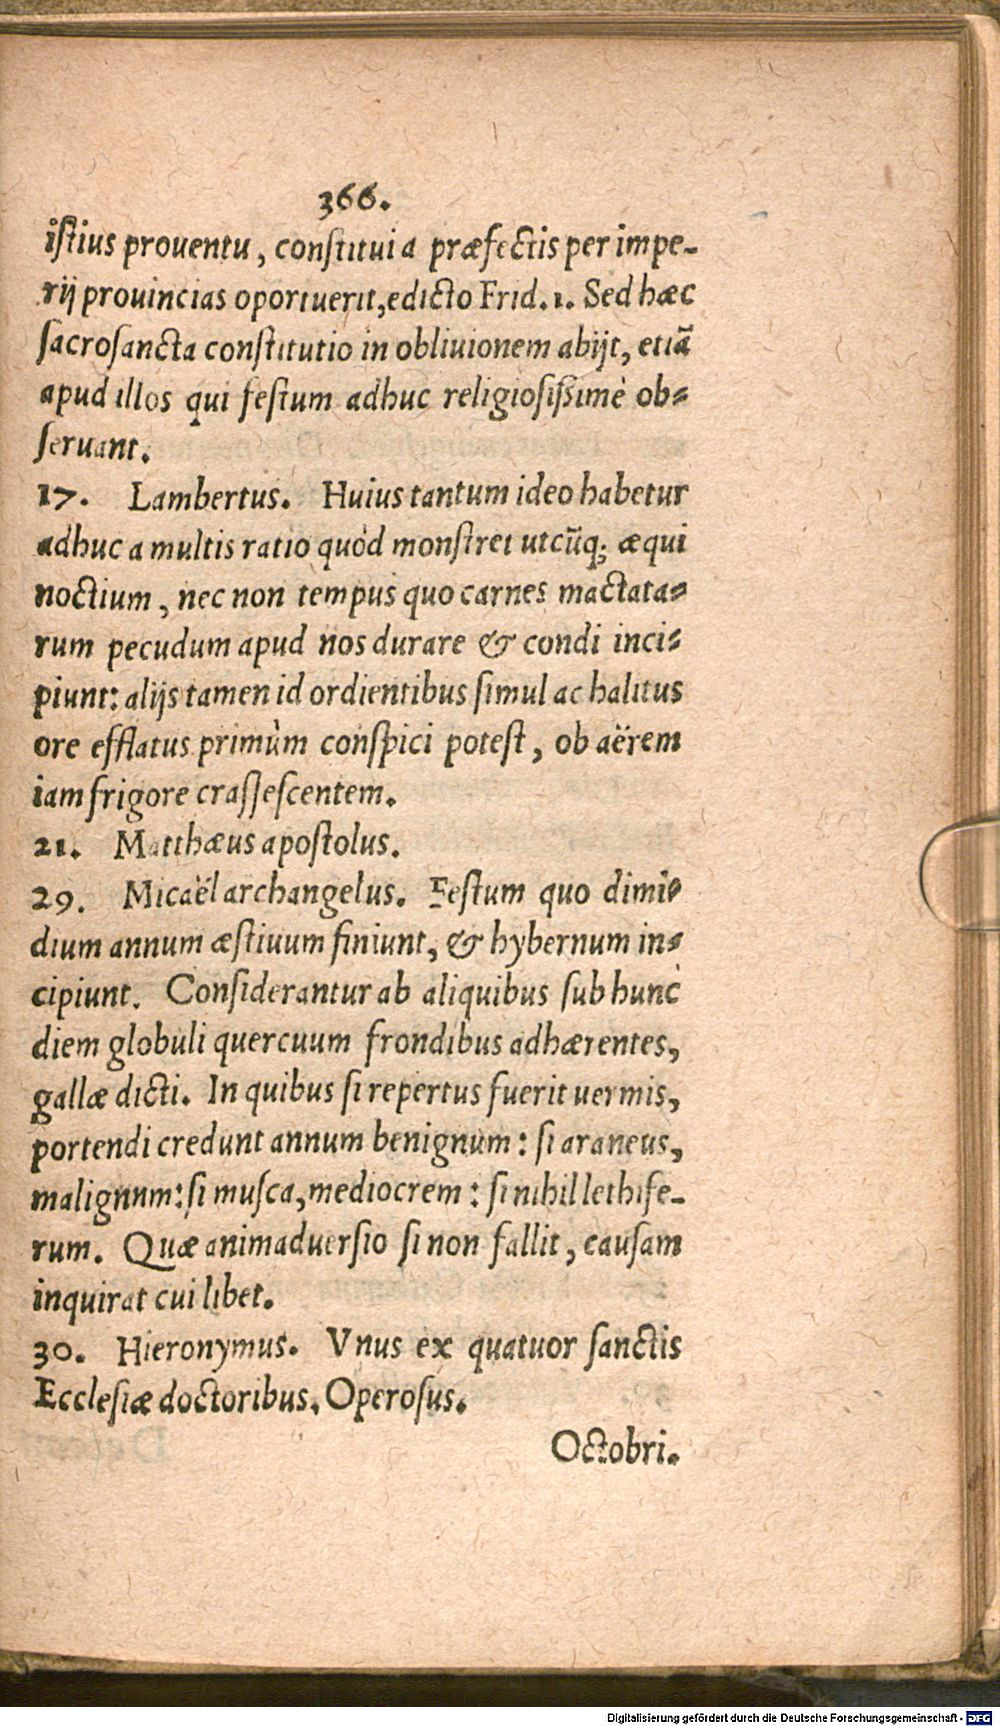 366.
istius proventu, constitui a præfectis per impe-
rij prouincias oportuerit, edicto Frid. 1. Sed hæc
sacrosancta constitutio in obliuionem abijt, etiã
apud illos qui festum adhuc religiosissimè ob-
seruant.
17. Lambertus. Huius tantum ideo habetur
adhuc a multis ratio quòd monstret utcũq; æqui
noctium, nec non tempus quo carnes mactata-
rum pecudum apud nos durare & condi inci-
piunt: alijs tamen id ordientibus simul ac halitus
ore efflatus primùm conspici potest, ob aërem
iam frigore crassescentem.
21. Matthæus apostolus.
29. Micaël archangelus. Festum quo dimi-
dium annum æstiuum finiunt, & hybernum in-
cipiunt. Considerantur ab aliquibus sub hunc
diem globuli quercuum frondibus adhærentes,
gallæ dicti. In quibus si repertus fuerit uermis,
portendi credunt annum benignum: si araneus,
malignum: si musca, mediocrem: si nihil lethife-
rum. Quæ animaduersio si non fallit, causam
inquirat cui libet.
30. Hieronymus. Vnus ex quatuor sanctis
Ecclesiæ doctoribus. Operosus.
Octobri.
Digitalisierung gefördert durch die Deutsche Forschungsgemeinschaft - DFG